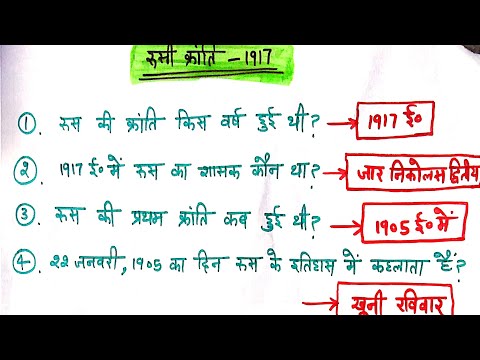 रूसी क्रांति - 1917
1. रूस की क्रांति किस वर्ष हुई थी? → 1917 ई०
2. 1917 ई० में रूस का शासक कौन था? → जार निकोलस द्वितीय
3. रूस की प्रथम क्रांति कब हुई थी? → 1905 ई० में
4. 22 जनवरी, 1905 का दिन रूस के इतिहास में कहलाता है?
→ खूनी रविवार